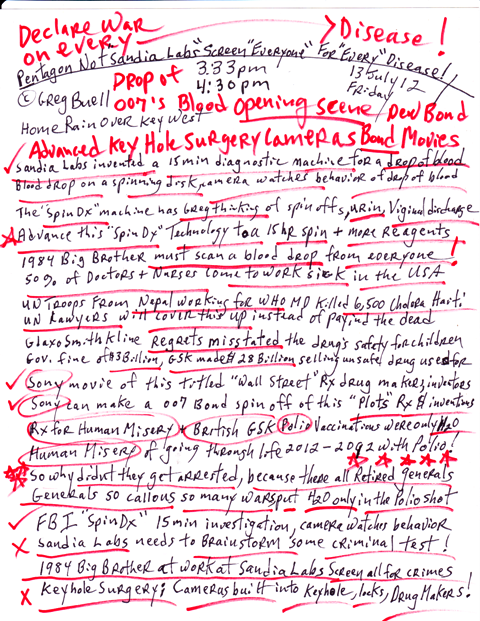 Declare War
on every Disease!
Pentagon Not "Sandia Labs" Screen "Everyone" For "Every" Disease!
Drop of 3:33pm 13 July 12
© Greg Buell 4:30pm Friday
007's Blood Opening Scene New Bond
Home Rain Over Key West
Advanced Key Hole Surgery Cameras Bond Movies
Sandia Labs invented a 15min diagnostic machine for a drop of blood
Blood drop on a spinning disk, camera watches behavior of drop of blood
The "Spin Dx" machine has Greg thinking of spin offs, urin, Viginal discharge
Advance this "Spin Dx" Technology to a 15hr spin + more reagents
1984 Big Brother must scan a blood drop from everyone!
50% of Doctors + Nurses come to work sick in the USA
UN Troops From Nepal working for WHO MD killed 6,500 Cholora Haiti.
UN Lawyers will cover this up instead of paying the dead
GlaxoSmithkline regrets misstated the drug's safety for children
Gov. fine of $3 Billion, GSK made $28 Billion selling unsafe drug used for
Sony movie of this titled "Wall Street" Rx drug makers, inventors
Sony can make a 007 Bond spin off of this "Plots" Rx & inventins
Rx for Human Misery * British GSK Polio Vaccinations were only H2O
Human Misery of going through life 2012-2092 with Polio!
So why didn't they get arrested, because there all Retired generals
Generals so callous so many wars put H2O only in the Polio shot
FBI "SpinDx" 15min investigation, camera watches behavior
Sandia Labs needs to Brainstorm some criminal test!
1984 Big Brother at work at Sandia Labs Screen all for crimes
Keyhole Surgery; Cameras built into Keyhole, locks, Drug Makers!